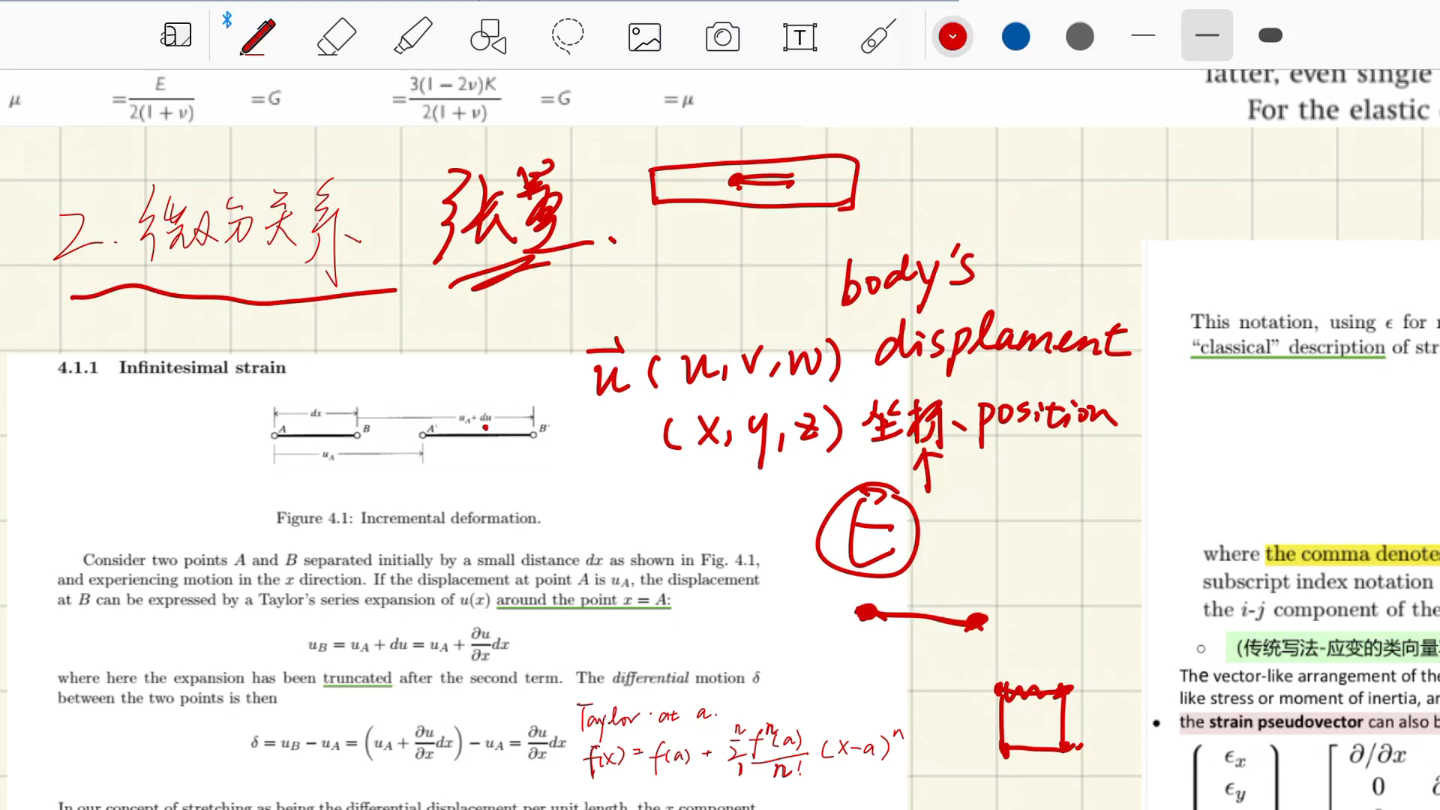 μ = E / 2(1 + ν) = G = 3(1 − 2ν)K / 2(1 + ν) = G = μ
latter, even single
For the elastic
2. 微分关系 张量.
body's
displament
u⃗ (u, v, w)
(x, y, z) 坐标、position
E
4.1.1 Infinitesimal strain
dx
u_A + du
A B A' B'
u_A
Figure 4.1: Incremental deformation.
Consider two points A and B separated initially by a small distance dx as shown in Fig. 4.1,
and experiencing motion in the x direction. If the displacement at point A is u_A, the displacement
at B can be expressed by a Taylor's series expansion of u(x) around the point x = A:
u_B = u_A + du = u_A + ∂u/∂x dx
where here the expansion has been truncated after the second term. The differential motion δ
between the two points is then
δ = u_B − u_A = (u_A + ∂u/∂x dx) − u_A = ∂u/∂x dx
Taylor. at a.
f(x) = f(a) + Σ fⁿ(a)/n! (x−a)ⁿ
In our concept of stretching as being the differential displacement per unit length, the x component
This notation, using ϵ for
"classical" description of
where the comma denotes
subscript index notation
the i-j component of the
○ (传统写法-应变的类向量
The vector-like arrangement of the
like stress or moment of inertia,
• the strain pseudovector can also
ϵx ∂/∂x
ϵy 0